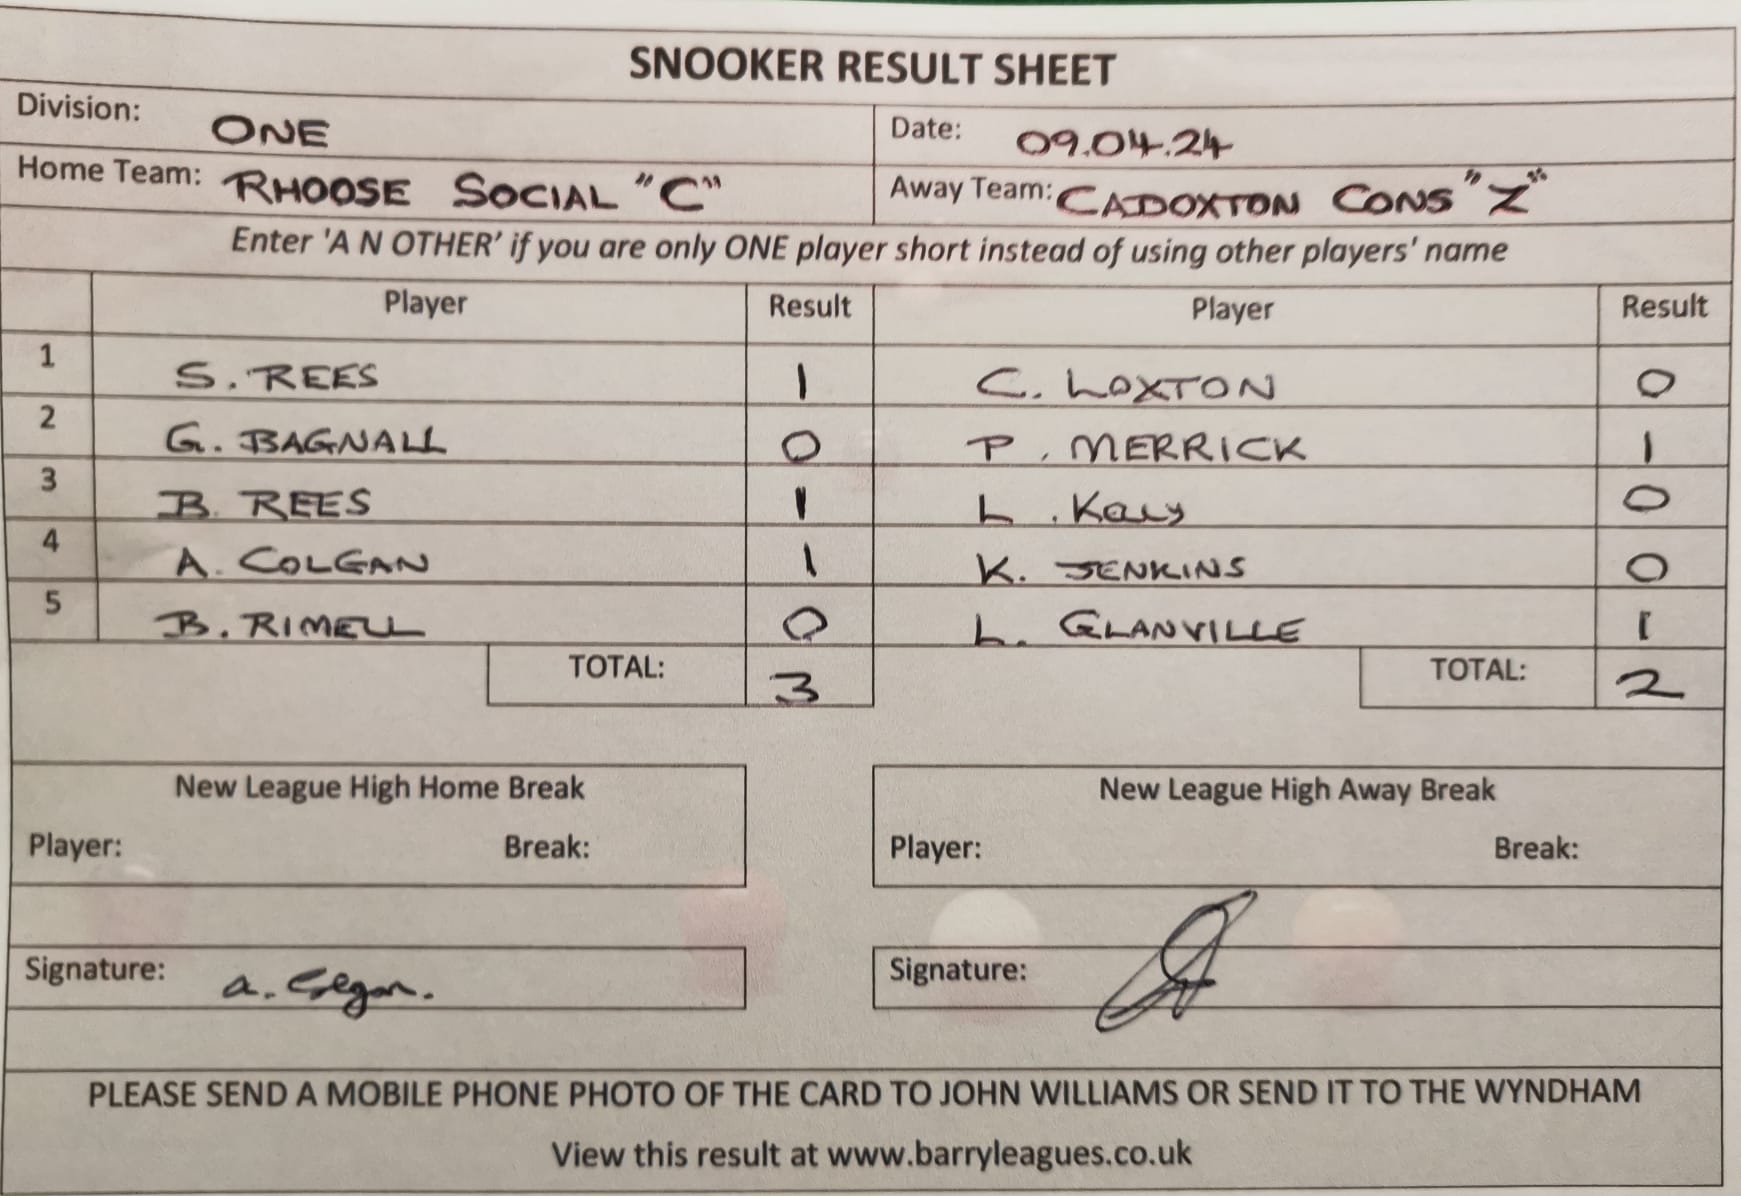 SNOOKER RESULT SHEET
Division: ONE Date: 09.04.24
Home Team: RHOOSE SOCIAL "C" Away Team: CADOXTON CONS "Z"
Enter 'A N OTHER' if you are only ONE player short instead of using other players' name
Player Result Player Result
1 S. REES 1 C. LOXTON 0
2 G. BAGNALL 0 P. MERRICK 1
3 B. REES 1 L. 0
4 A. COLGAN 1 K. JENKINS 0
5 B. RIMELL 0 L. GLANVILLE 1
TOTAL: 3 TOTAL: 2
New League High Home Break New League High Away Break
Player: Break: Player: Break:
Signature: a. Signature:
PLEASE SEND A MOBILE PHONE PHOTO OF THE CARD TO JOHN WILLIAMS OR SEND IT TO THE WYNDHAM
View this result at www.barryleagues.co.uk